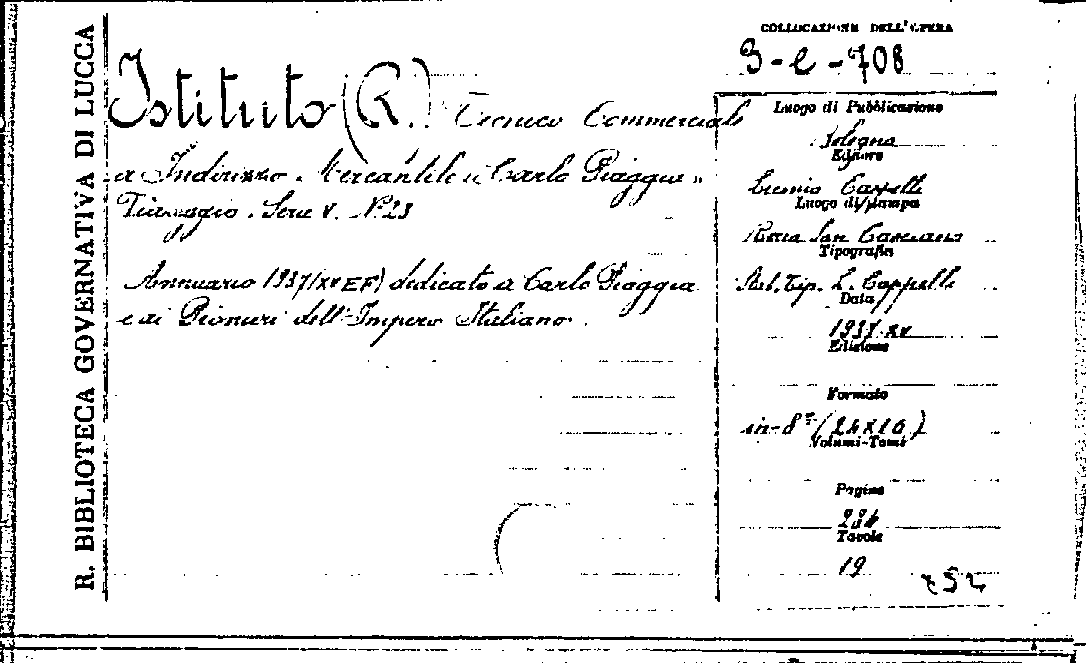 R. BIBLIOTECA GOVERNATIVA DI LUCCA
COLLOCAZIONE DELL'OPERA
3-e-708
Istituto (R.) Tecnico Commerciale
a Indirizzo Mercantile "Carlo Piaggia"
Viareggio. Serie V. N. 23
Annuario 1937/XV EF) dedicato a Carlo Piaggia
e ai Pionieri dell'Impero Italiano.
Luogo di Pubblicazione
Bologna
Editore
Licinio Cappelli
Luogo di stampa
Rocca San Casciano
Tipografia
Stab. Tip. L. Cappelli
Data
1937-XV
Edizione
Formato
in-8° (24x16)
Volumi-Tomi
Pagine
234
Tavole
19